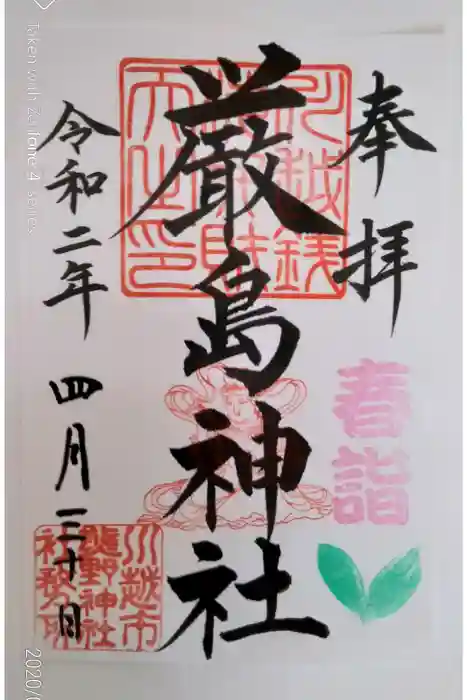 奉拝
春詣
厳島神社
川越銭洗弁財天之印
令和二年 四月三十日
川越市熊野神社社務所印
Taken with Zenfone 4 series
2020/